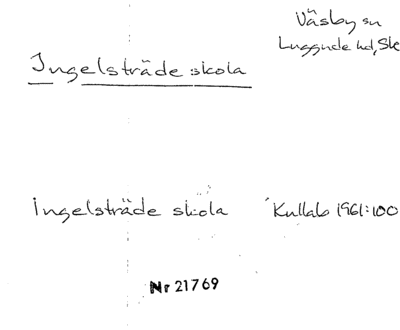 Väsby sn
Luggude hd, Sk
Ingelsträde skola
Ingelsträde skola Kullab 1961:100
Nr 21769